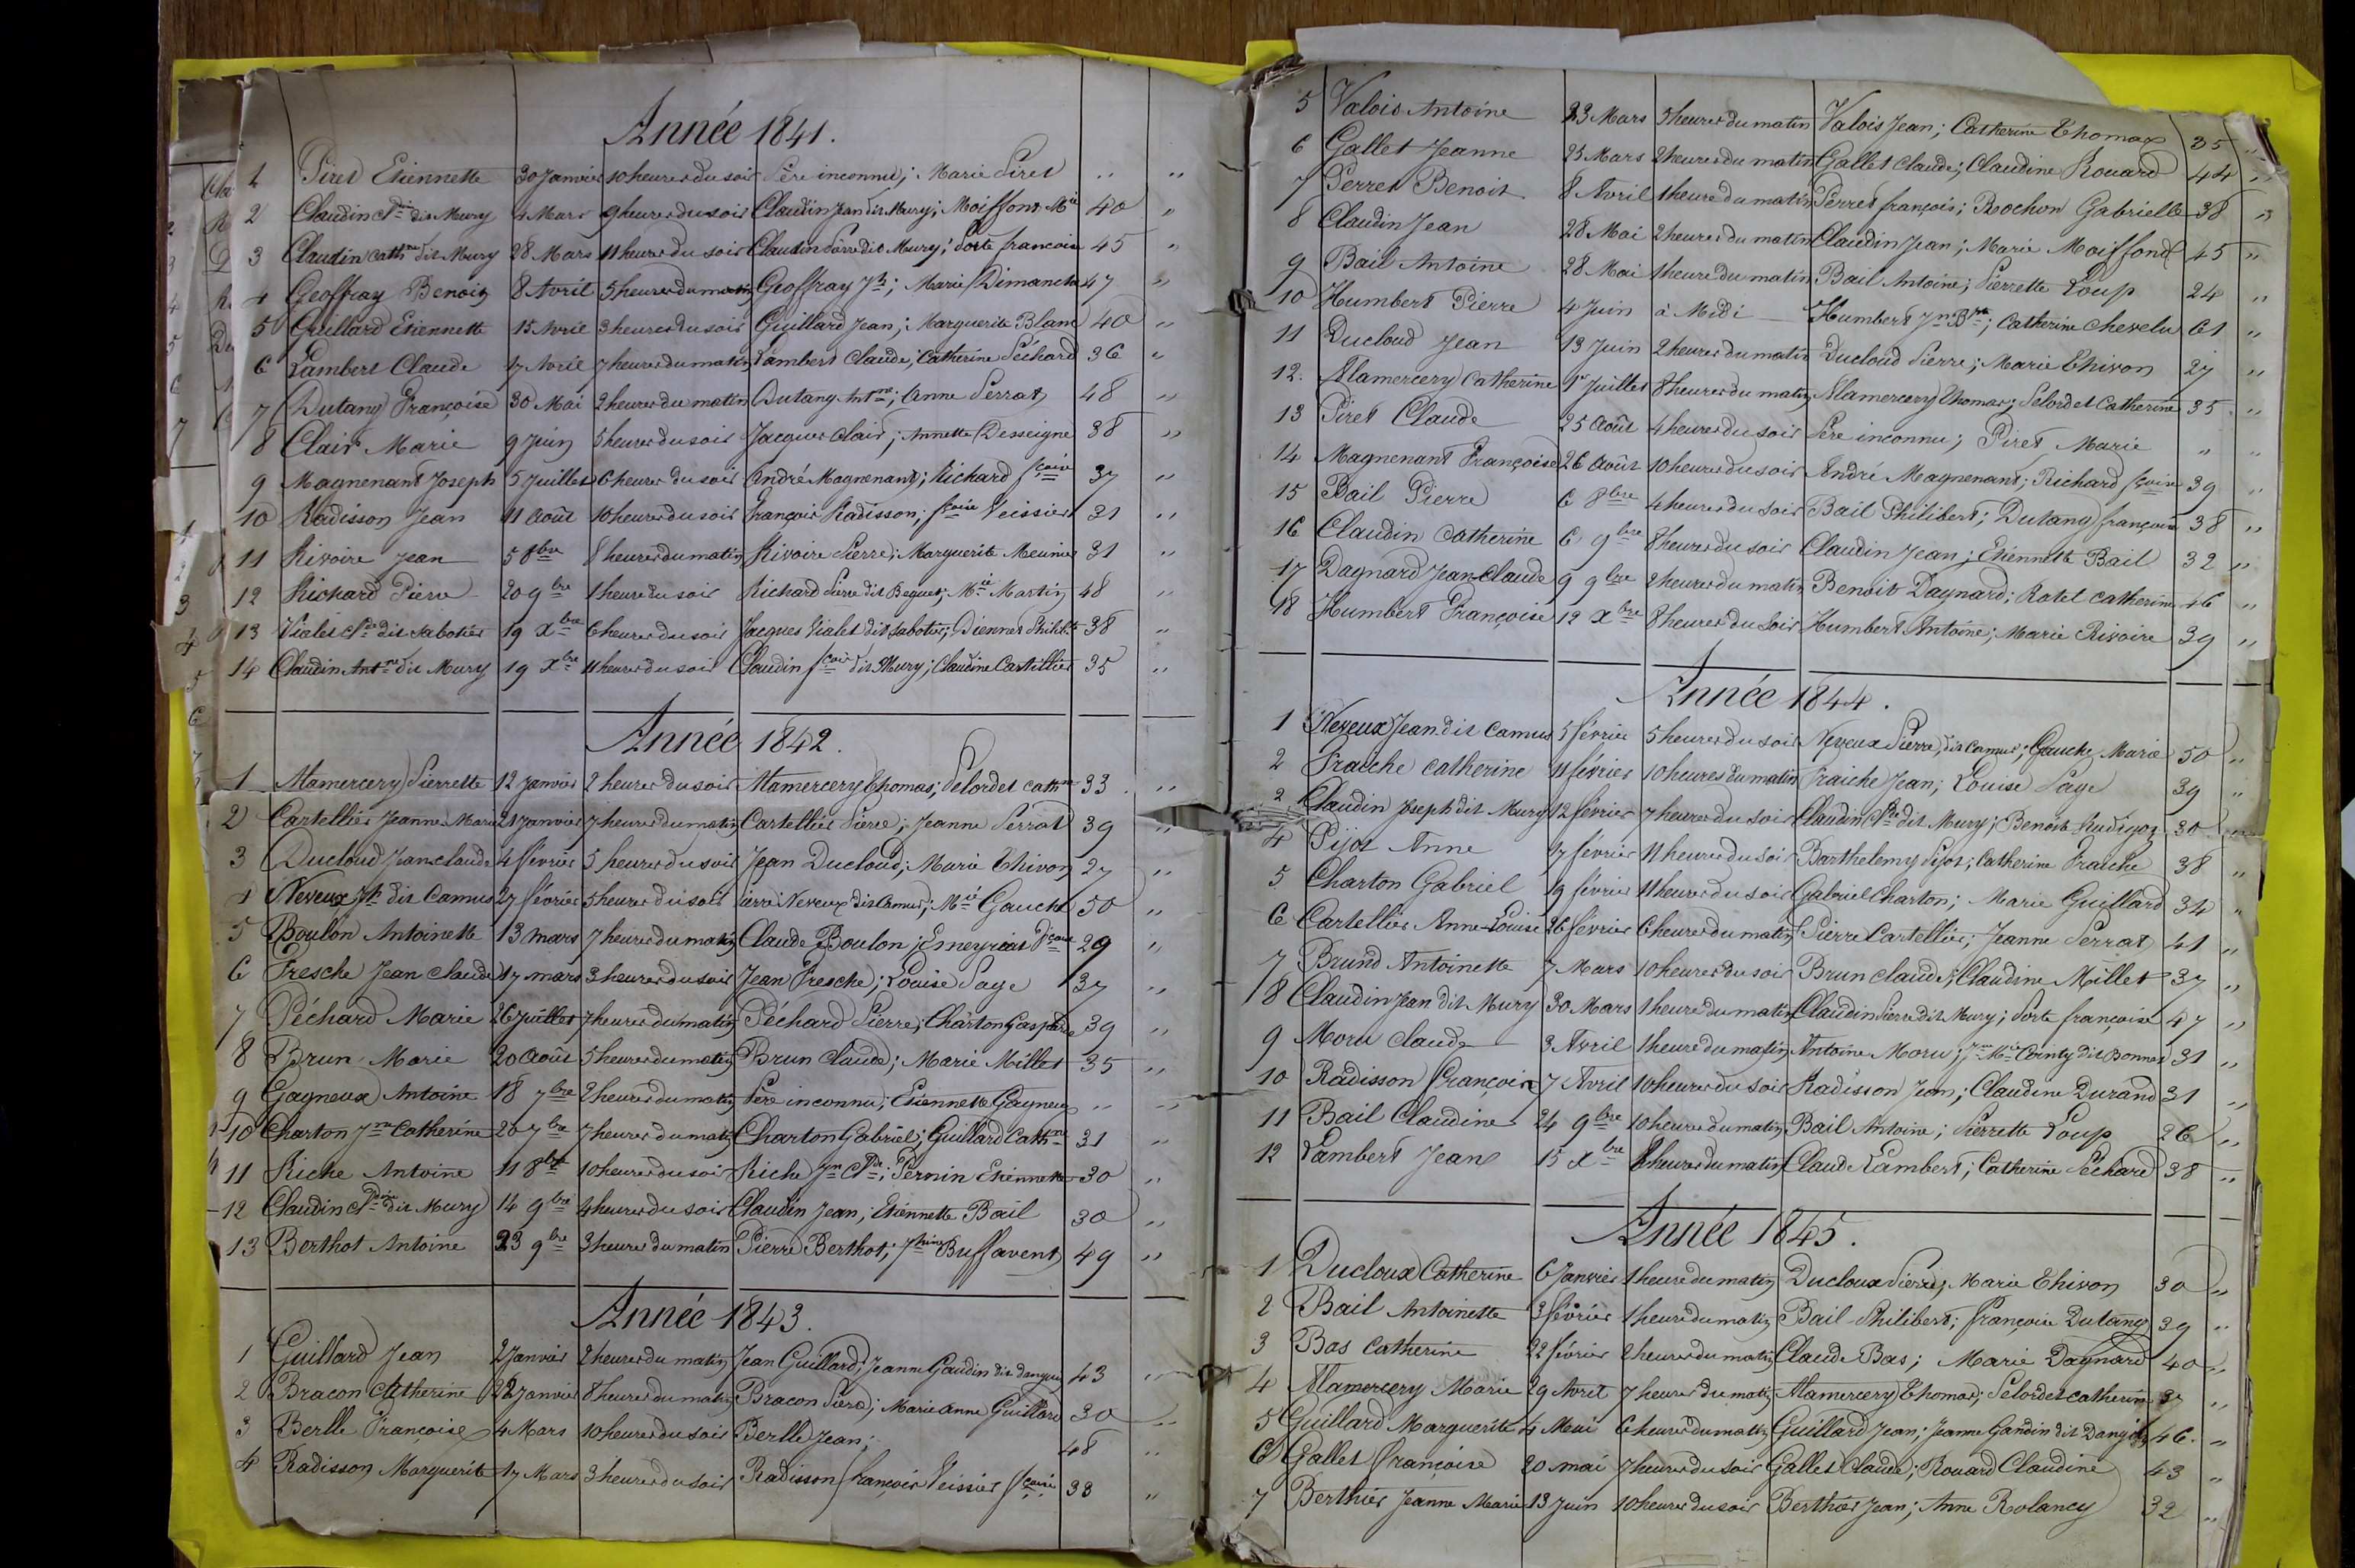 Année 1841.
1 Piret Etiennette 30 Janvier 10 heures du soir Père inconnu; Marie Piret " "
2 Claudin Cl dit Mury 4 Mars 9 heures du soir Claudin Jean dit Mury; Moiffond Mie 40 "
3 Claudin Cathne dit Mury 28 Mars 11 heures du soir Claudin Pierre dit Mury; Sorte françoise 45 "
4 Geoffray Benoit 8 Avril 5 heures du matin Geoffray Jh; Marie Dimanche 47 "
5 Guillard Etiennette 15 Avril 3 heures du soir Guillard Jean; Marguerite Blanc 40 "
6 Lambert Claude 17 Avril 7 heures du matin Lambert Claude; Catherine Péchard 36 "
7 Dutang Françoise 30 Mai 2 heures du matin Dutang Antne; Anne Perrat 48 "
8 Clair Marie 9 Juin 5 heures du soir Jacques Clair; Annette Desseigne 38 "
9 Magnenant Joseph 5 Juillet 6 heures du soir André Magnenant; Richard fçoise 37 "
10 Radisson Jean 11 Août 10 heures du soir François Radisson; fçoise Veissier 31 "
11 Rivoire Jean 5 8bre 8 heures du matin Rivoire Pierre; Marguerite Meunier 31 "
12 Richard Pierre 20 9bre 1 heure du soir Richard Pierre dit Beguet; Mie Martin 48 "
13 Vialet Cl dit Sabotier 19 Xbre 6 heures du soir Jacques Vialet dit Sabotier; Diennet Philibte 38 "
14 Claudin Antne dit Mury 19 Xbre 11 heures du soir Claudin fçois dit Mury; Claudine Cartellier 35 "
Année 1842.
1 Mamercery Pierrette 12 Janvier 2 heures du soir Mamercery Thomas; Pelordet Cathne 33 "
2 Cartellier Jeanne Marie 21 Janvier 7 heures du matin Cartellier Pierre; Jeanne Perrat 39 "
3 Ducloud Jean Claude 4 février 5 heures du soir Jean Ducloud; Marie Thivon 27 "
4 Neveux Jh dit Camus 27 février 5 heures du soir Pierre Neveux dit Camus; Mie Gauche 50 "
5 Boulon Antoinette 13 mars 7 heures du matin Claude Boulon; Emeyriat fçoise 29 "
6 Fresche Jean Claude 17 mars 3 heures du soir Jean Fresche; Louise Page 37 "
7 Péchard Marie 26 Juillet 7 heures du matin Péchard Pierre; Charton Gasparde 39 "
8 Brun Marie 20 Août 5 heures du matin Brun Claude; Marie Millet 35 "
9 Gagneux Antoine 18 7bre 2 heures du matin Père inconnu; Etiennette Gagneux " "
10 Charton Jne Catherine 20 7bre 7 heures du matin Charton Gabriel; Guillard Cathne 31 "
11 Riche Antoine 11 8bre 10 heures du soir Riche Jn Cl; Pernin Etiennette 30 "
12 Claudin Cl dit Mury 14 9bre 4 heures du soir Claudin Jean; Etiennette Bail 30 "
13 Berthot Antoine 23 9bre 3 heures du matin Pierre Berthot; Jhine Buffavent 49 "
Année 1843.
1 Guillard Jean 2 Janvier 2 heures du matin Jean Guillard; Jeanne Gandin dit dangun 43 "
2 Bracon Catherine 22 Janvier 8 heures du matin Bracon Pierre; Marie Anne Guillard 30 "
3 Berlle Françoise 4 Mars 10 heures du soir Berlle Jean; 48 "
4 Radisson Marguerite 17 Mars 3 heures du soir Radisson françois Veissier fçoise 33 "
5 Valois Antoine 23 Mars 5 heures du matin Valois Jean; Catherine Thomas 35 "
6 Gallet Jeanne 25 Mars 2 heures du matin Gallet Claude; Claudine Rouard 44 "
7 Perret Benoit 8 Avril 1 heure du matin Perret françois; Rochon Gabrielle 38 "
8 Claudin Jean 28 Mai 2 heures du matin Claudin Jean; Marie Moiffond 45 "
9 Bail Antoine 28 Mai 1 heure du matin Bail Antoine; Pierrette Loup 24 "
10 Humbert Pierre 4 Juin à Midi Humbert Jn Bte; Catherine Chevelu 61 "
11 Ducloud Jean 13 Juin 2 heures du matin Ducloud Pierre; Marie Thivon 27 "
12. Mamercery Catherine 1er Juillet 8 heures du matin Mamercery Thomas; Pelordet Catherine 35 "
13 Piret Claude 25 Août 4 heures du soir Père inconnu; Piret Marie " "
14 Magnenant Françoise 26 Août 10 heures du soir André Magnenant; Richard fçoise 39 "
15 Bail Pierre 6 8bre 4 heures du soir Bail Philibert; Dutang françoise 38 "
16 Claudin Catherine 6 9bre 8 heures du soir Claudin Jean; Etiennette Bail 32 "
17 Dagnard Jean-Claude 9 9bre 2 heures du matin Benoit Dagnard; Rotet Catherine 46 "
18 Humbert Françoise 12 Xbre 8 heures du soir Humbert Antoine; Marie Rivoire 39 "
Année 1844.
1 Neveux Jean dit Camus 5 février 5 heures du soir Neveux Pierre dit Camus; Gauche Marie 50 "
2 Fraiche Catherine 11 février 10 heures du matin Fraiche Jean; Louise Page 39 "
2 Claudin Joseph dit Mury 12 février 7 heures du soir Claudin Cl dit Mury; Benoite Rudigoz 30 "
4 Pijot Anne 17 février 11 heures du soir Barthelemy Pijot; Catherine Fraiche 38 "
5 Charton Gabriel 19 février 11 heures du soir Gabriel Charton; Marie Guillard 34 "
6 Cartellier Anne-Louise 26 février 6 heures du matin Pierre Cartellier; Jeanne Perrat 41 "
7 Brund Antoinette 7 Mars 10 heures du soir Brun Claude; Claudine Millet 37 "
8 Claudin Jean dit Mury 30 Mars 1 heure du matin Claudin Pierre dit Mury; Sorte françoise 47 "
9 Moru Claude 3 Avril 1 heure du matin Antoine Moru; Jne Mie Cointy dit Bonnat 31 "
10 Radisson françoise 7 Avril 10 heures du soir Radisson Jean; Claudine Durand 31 "
11 Bail Claudine 24 9bre 10 heures du matin Bail Antoine; Pierrette Loup 26 "
12 Lambert Jean 15 Xbre 8 heures du matin Claude Lambert; Catherine Péchard 38 "
Année 1845.
1 Ducloux Catherine 6 Janvier 1 heure du matin Ducloux Pierre; Marie Thivon 30 "
2 Bail Antoinette 3 février 1 heure du matin Bail Philibert; françoise Dutang 39 "
3 Bas Catherine 22 février 2 heures du matin Claude Bas; Marie Dagnard 40 "
4 Mamercery Marie 29 Avril 7 heures du matin Mamercery Thomas; Pelordet Catherine 37 "
5 Guillard Marguerite 4 Mai 6 heures du matin Guillard Jean; Jeanne Gandin dit 46. "
6 Gallet françoise 20 mai 7 heures du soir Gallet Claude; Rouard Claudine 43 "
7 Berthier Jeanne Marie 13 Juin 10 heures du soir Berthier Jean; Anne Rolancy 32 "